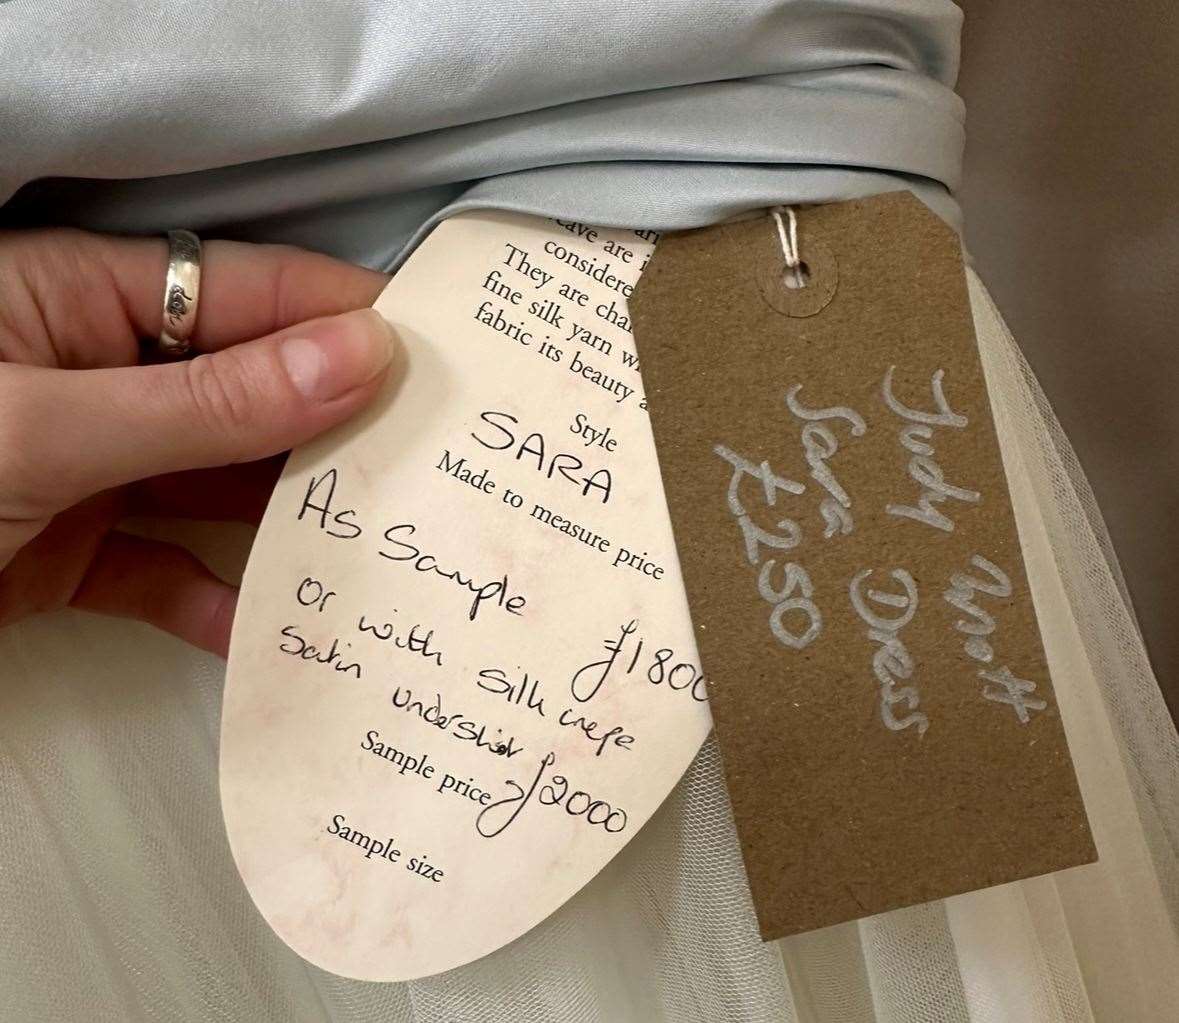 are i
considere
They are cha
fine silk yarn w
fabric its beauty a
Style
SARA
Made to measure price
As Sample
£1800
or with silk crepe
Satin underskirt
£2000
Sample price
Sample size
Judy Mott
Sara Dress
£250